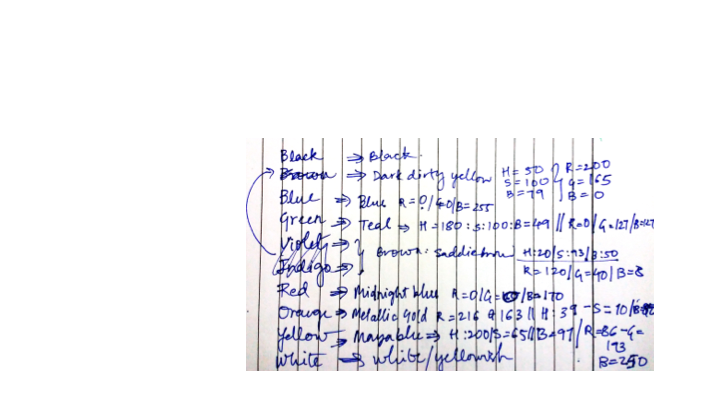 Black ⇒ Black.
Brown ⇒ Dark dirty yellow H=50 S=100 B=79 } R=200 G=165 B=0
Blue ⇒ Blue R=0/G=0/B=255
Green ⇒ Teal ⇒ H=180:S:100:B=49 // R=0/G=127/B=127
Violet ⇒ }
Brown: saddlebrown H:20/S:93/B:50
Indigo ⇒ R=120/G=40/B=8
Red ⇒ Midnight blue R=0/G= /B=170
Orange ⇒ Metallic gold R=216 G 163 // H:39 - S=10/B=
Yellow ⇒ Mayablue ⇒ H:200/S=65//B=97/R=86-G=193
White ⇒ white/yellowish B=250